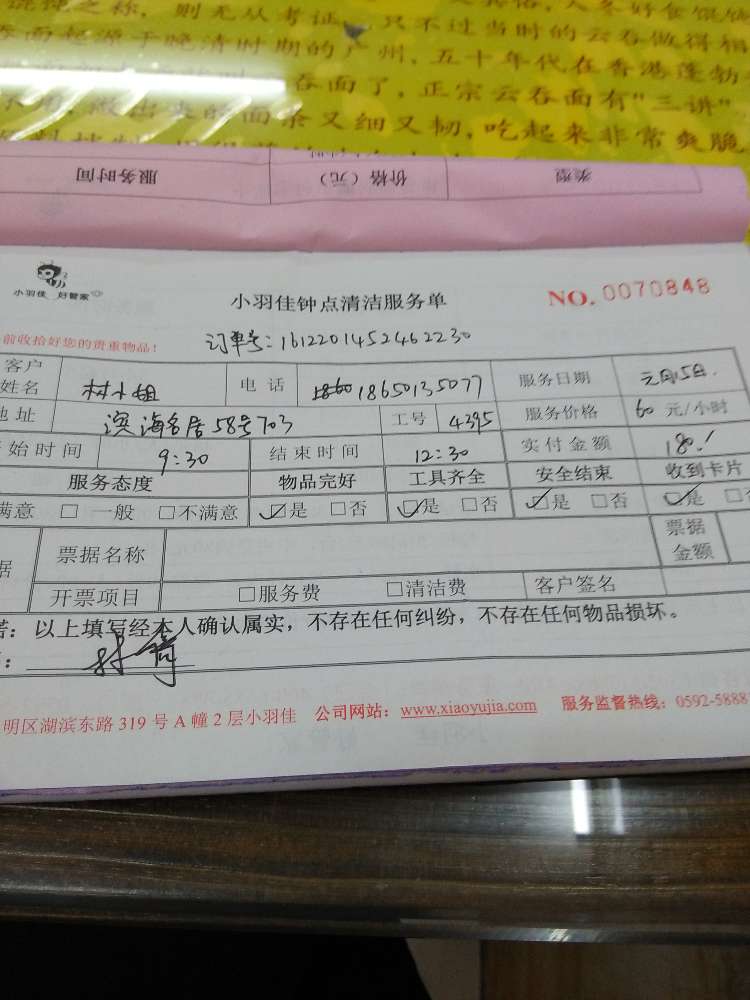 则无从考证，只不过当时的云吞做得相
面起源于晚清时期的广州，五十年代在香港蓬勃
吞面了，正宗云吞面有"三讲"
面条又细又韧，吃起来非常爽脆
服务时间 价格（元） 类型
小羽佳 好管家
小羽佳钟点清洁服务单
NO. 0070848
前收拾好您的贵重物品！
订单号：1612201452462230
客户姓名 林小姐 电话 18650135077 服务日期 元月15日.
地址 滨海名居58号703 工号 4395 服务价格 60 元/小时
始时间 9:30 结束时间 12:30 实付金额 180!
服务态度 物品完好 工具齐全 安全结束 收到卡片
满意 □ 一般 □不满意 ☑是 □否 ☑是 □否 ☑是 □否 ☑是
据 票据名称 票据金额
开票项目 □服务费 □清洁费 客户签名
诺：以上填写经本人确认属实，不存在任何纠纷，不存在任何物品损坏。
明区湖滨东路 319 号 A 幢 2 层小羽佳 公司网站：www.xiaoyujia.com 服务监督热线：0592-5888